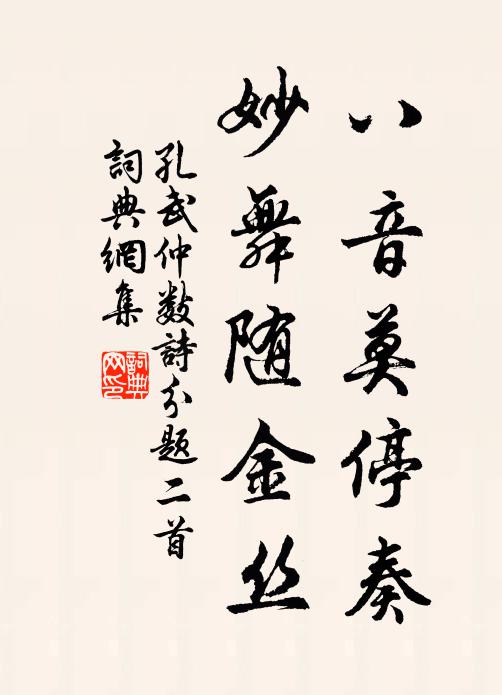 八音莫停奏
妙舞随金丝
孔武仲数詩分题二首
詞典網集
詞典网印